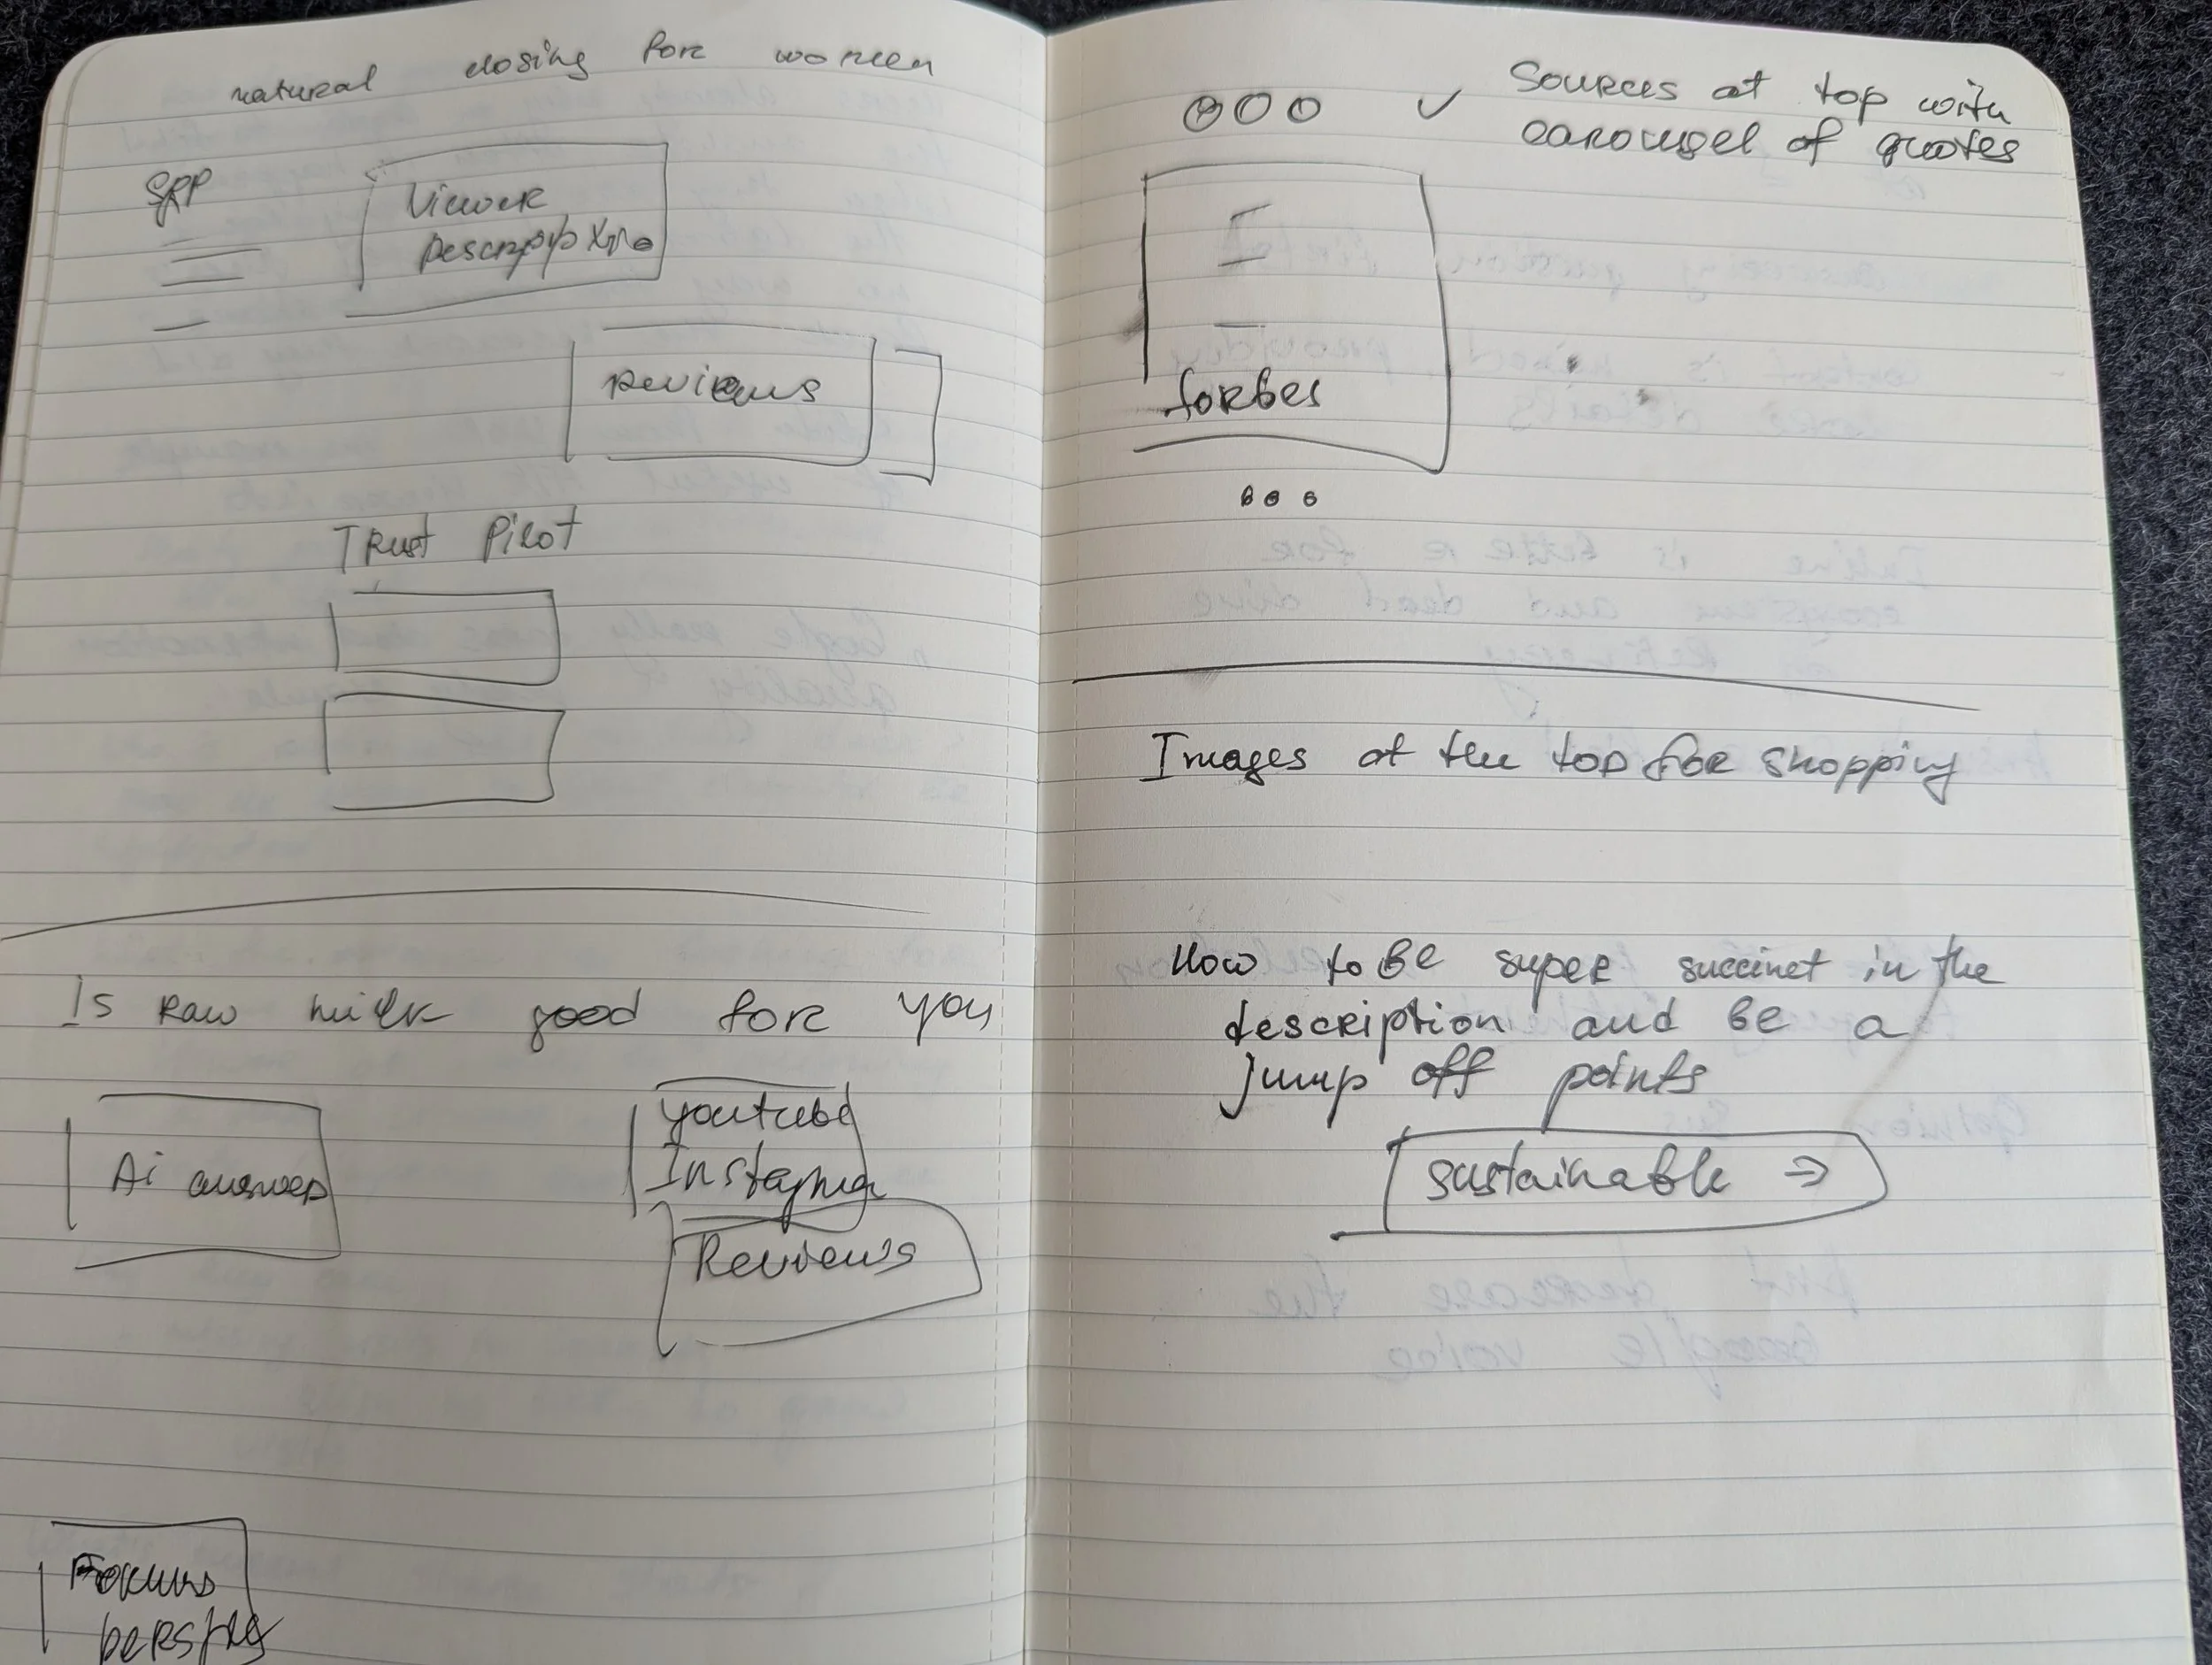 natural closing for women
SRP
Viewer
reviews
Trust Pilot
Is raw milk good for you
Ai answer
youtube
Instagram
Reviews
Forums
Sources at top with
carousel of quotes
forbes
Images at the top for shopping
How to be super succinct in the
description and be a
jump off points
sustainable ⇒